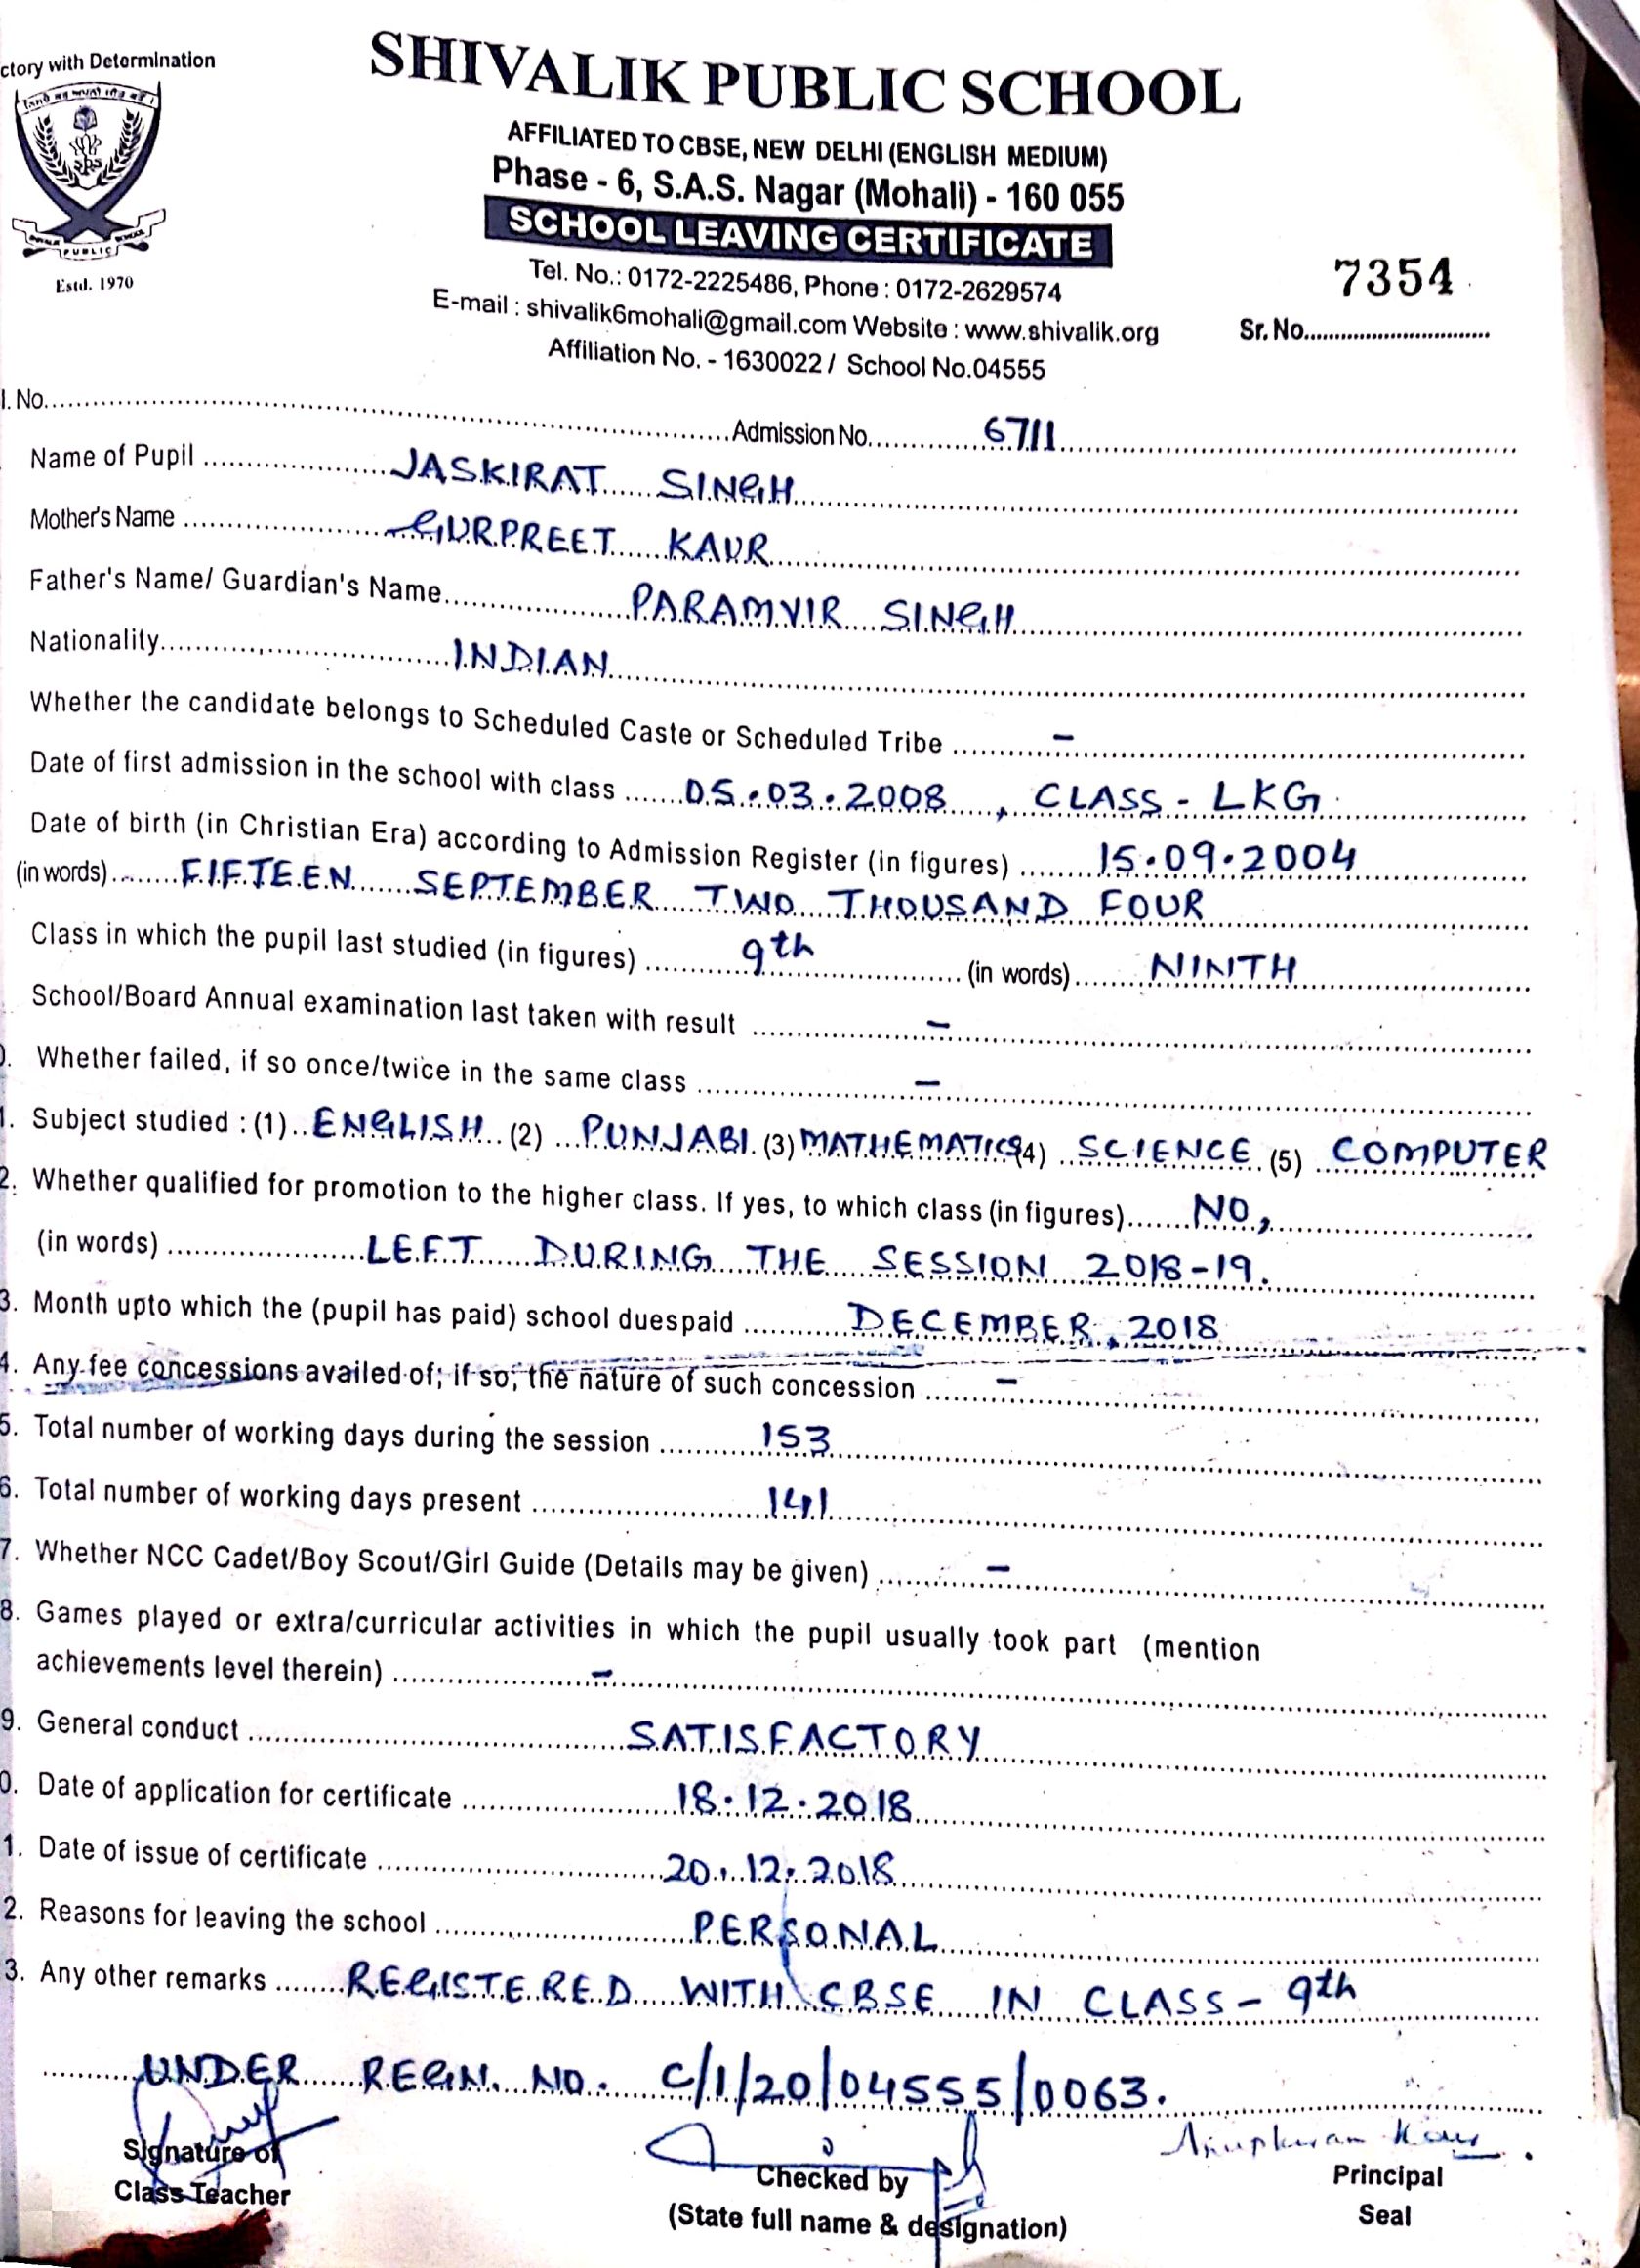 ctory with Determination
SHIVALIK PUBLIC SCHOOL
AFFILIATED TO CBSE, NEW DELHI (ENGLISH MEDIUM)
Phase - 6, S.A.S. Nagar (Mohali) - 160 055
SCHOOL LEAVING CERTIFICATE
Estd. 1970
PUBLIC
Tel. No.: 0172-2225486, Phone : 0172-2629574
7354
E-mail : shivalik6mohali@gmail.com Website : www.shivalik.org
Sr. No.
Affiliation No. - 1630022 / School No.04555
l. No. Admission No. 6711
Name of Pupil JASKIRAT SINGH
Mother's Name GURPREET KAUR
Father's Name/ Guardian's Name PARAMVIR SINGH
Nationality INDIAN
Whether the candidate belongs to Scheduled Caste or Scheduled Tribe –
Date of first admission in the school with class 05.03.2008, CLASS - LKG
Date of birth (in Christian Era) according to Admission Register (in figures) 15.09.2004
(in words) FIFTEEN SEPTEMBER TWO THOUSAND FOUR
Class in which the pupil last studied (in figures) 9th (in words) NINTH
School/Board Annual examination last taken with result –
0. Whether failed, if so once/twice in the same class –
1. Subject studied : (1) ENGLISH (2) PUNJABI (3) MATHEMATICS (4) SCIENCE (5) COMPUTER
2. Whether qualified for promotion to the higher class. If yes, to which class (in figures) NO,
(in words) LEFT DURING THE SESSION 2018-19.
3. Month upto which the (pupil has paid) school duespaid DECEMBER, 2018
4. Any fee concessions availed of; if so; the nature of such concession –
5. Total number of working days during the session 153
6. Total number of working days present 141
7. Whether NCC Cadet/Boy Scout/Girl Guide (Details may be given) –
8. Games played or extra/curricular activities in which the pupil usually took part (mention
achievements level therein) –
9. General conduct SATISFACTORY
0. Date of application for certificate 18.12.2018
1. Date of issue of certificate 20.12.2018
2. Reasons for leaving the school PERSONAL
3. Any other remarks REGISTERED WITH CBSE IN CLASS - 9th
UNDER REGN. NO. C/1/20/04555/0063.
Signature of
Class Teacher
Checked by
(State full name & designation)
Principal
Seal